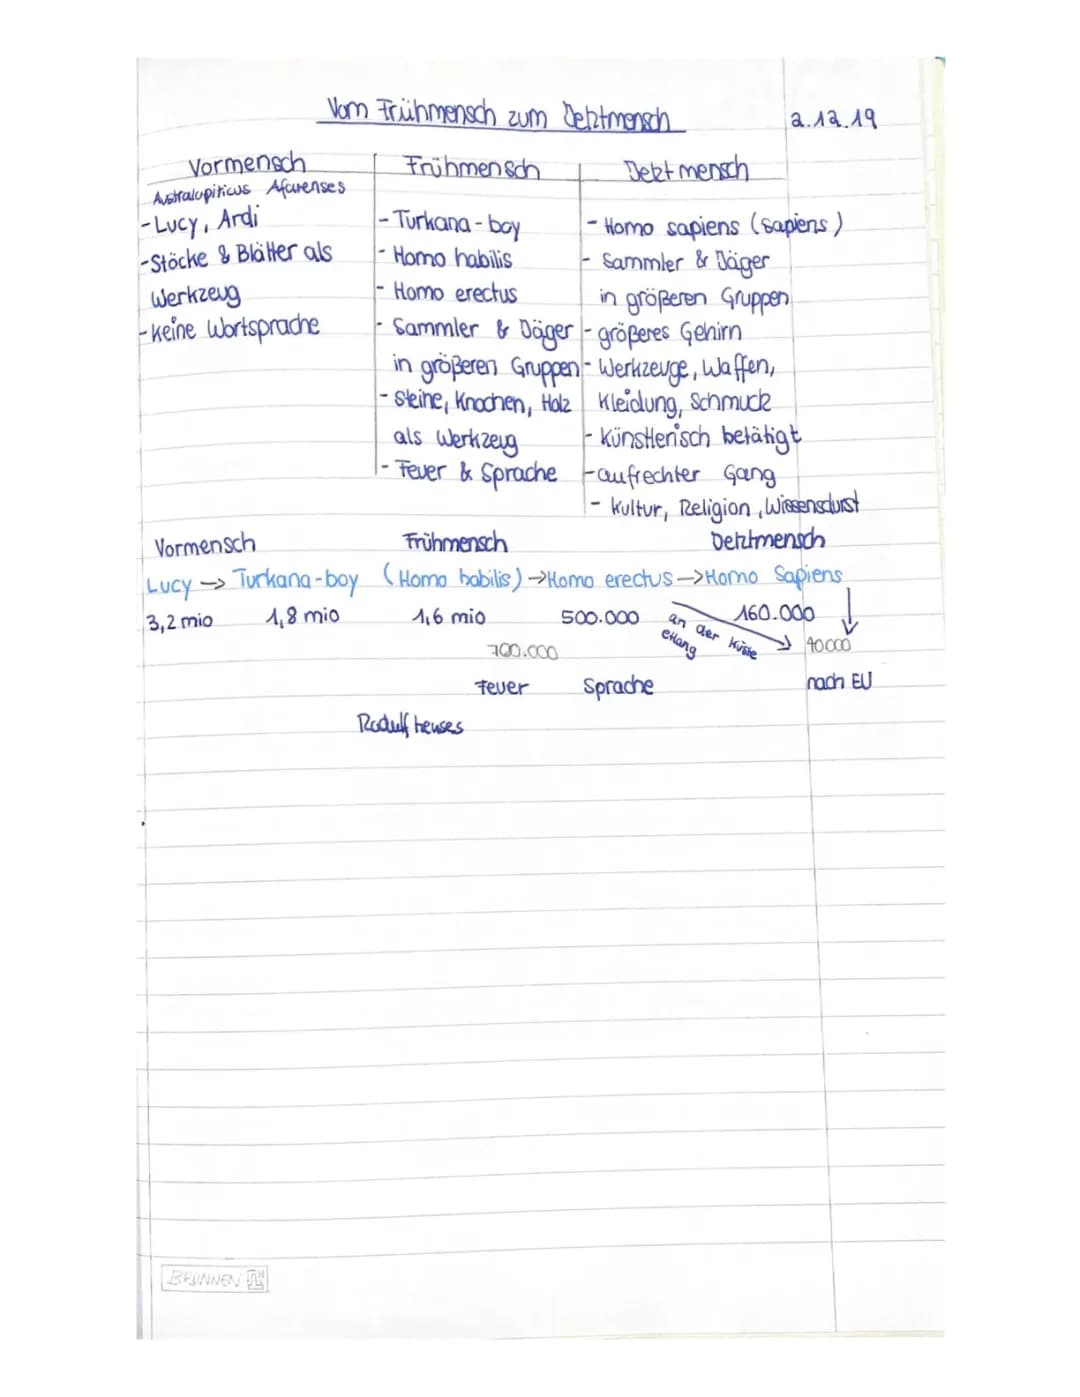 Vom Frühmensch zum Jetztmensch 2.12.19
Vormensch
Australupiticus Afarenses
- Lucy, Ardi
- Stöcke & Blätter als
Werkzeug
- keine Wortsprache
Frühmensch
- Turkana-boy
- Homo habilis
- Homo erectus
- Sammler & Jäger
in größeren Gruppen
- Steine, Knochen, Holz
als Werkzeug
- Feuer & Sprache
Jetztmensch
- Homo sapiens (sapiens)
- Sammler & Jäger
in größeren Gruppen
- größeres Gehirn
- Werkzeuge, Waffen,
Kleidung, Schmuck
- Künstlerisch betätigt
- aufrechter Gang
- Kultur, Religion, Wissensdurst
Vormensch Frühmensch Jetztmensch
Lucy → Turkana-boy (Homo habilis) → Homo erectus → Homo Sapiens
3,2 mio 1,8 mio 1,6 mio 500.000 160.000
an der Küste
etlang
700.000 40000
Feuer Sprache nach EU
BRUNNEN